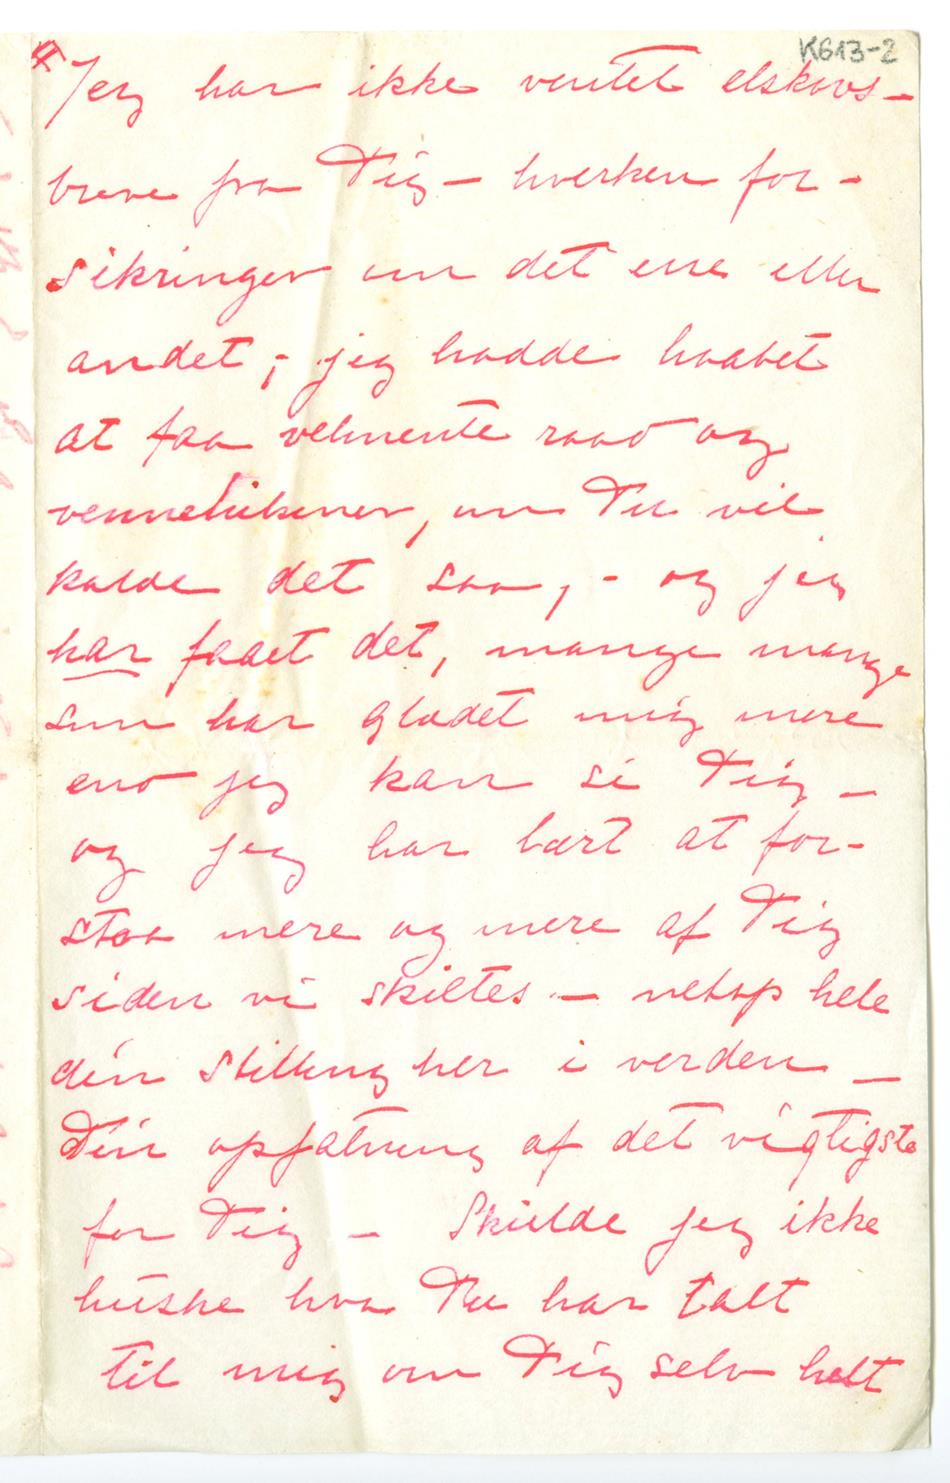 K613-2
Jeg har ikke ventet elskovs-
breve fra Dig – hverken for-
sikringer om det ene eller
andet; – jeg hadde haabet
at faa velmente raad og
vennetitkener, om Du vil
kalde det saa, – og jeg
har faaet det, mange mange
som har glædet mig mere
end jeg kan si Dig –
og jeg har lært at for-
staa mere og mere af Dig
siden vi skiltes – netop hele
din stilling her i verden –
Din opfatning af det vigtigste
for Dig – Skulde jeg ikke
huske hva Du har talt
til mig om Dig selv helt